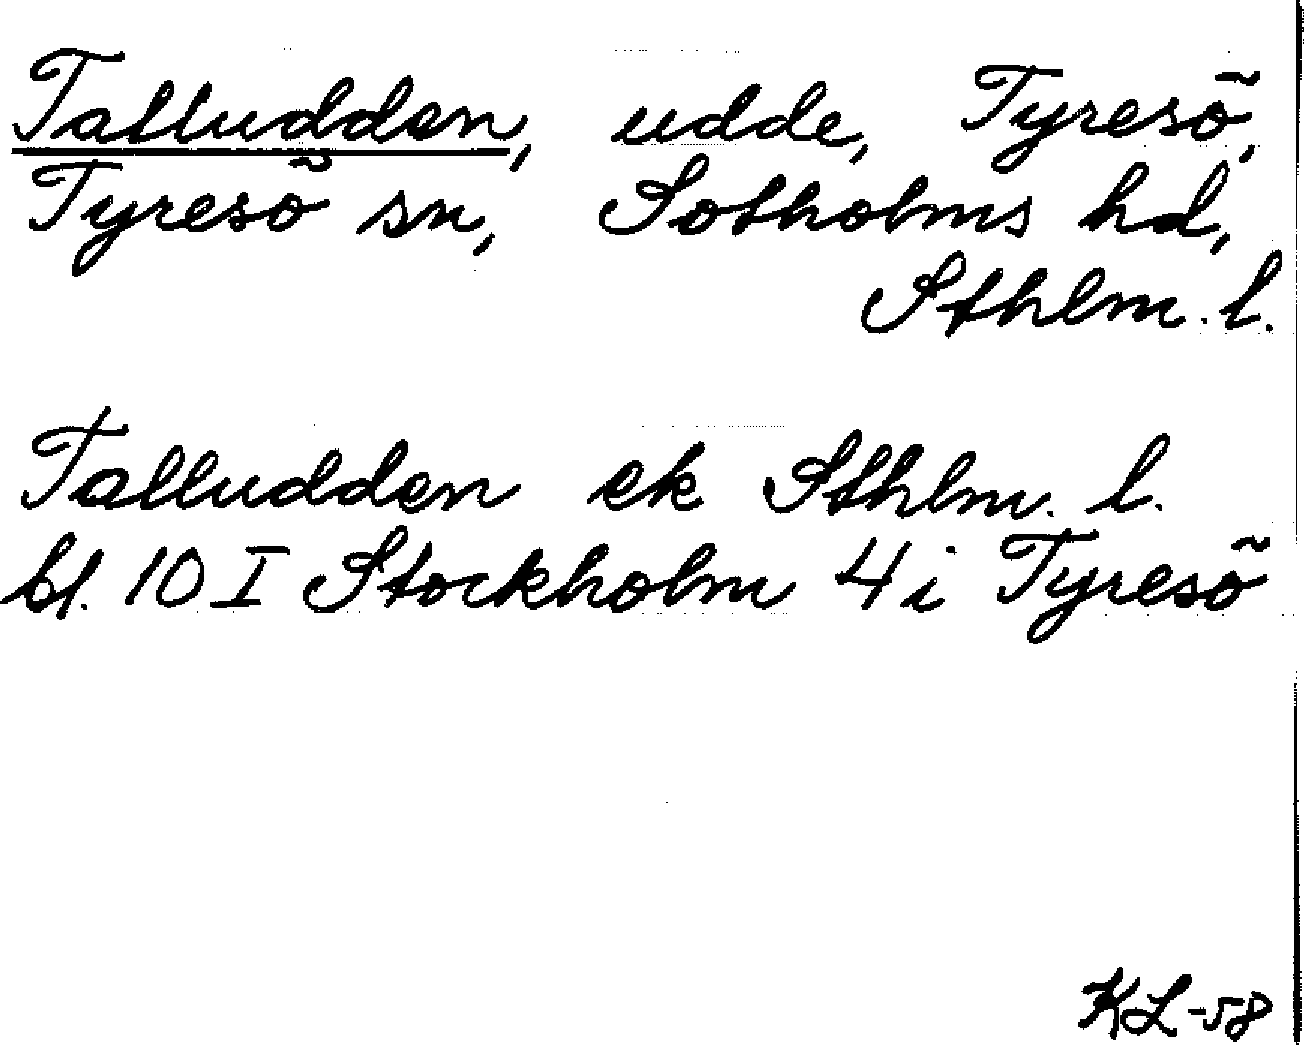 Talludden, udde, Tyresö,
Tyresö sn, Sotholms hd,
Sthlm. l.
Talludden ek Sthlm. l.
bl. 10 I Stockholm 4 i Tyresö
KL-58